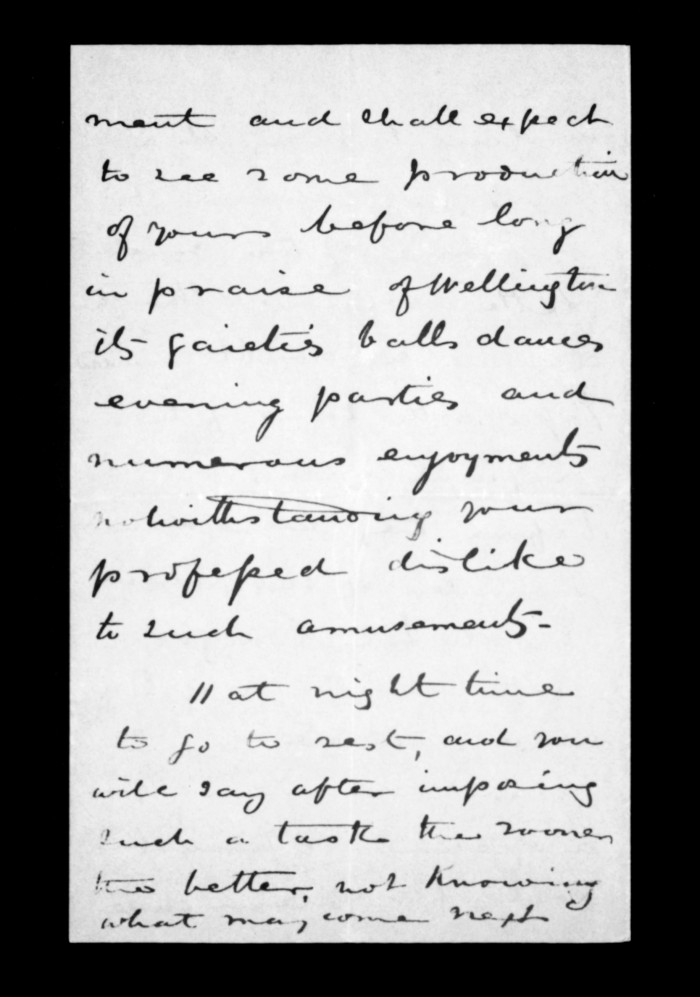 ment and shall expect
to see some production
of yours before long
in praise of Wellington
its gaieties balls dances
evening parties and
numerous enjoyments
notwithstanding your
professed dislike
to such amusements -
11 at night time
to go to rest, and you
will say after imposing
such a task the sooner
the better, not knowing
what may come next